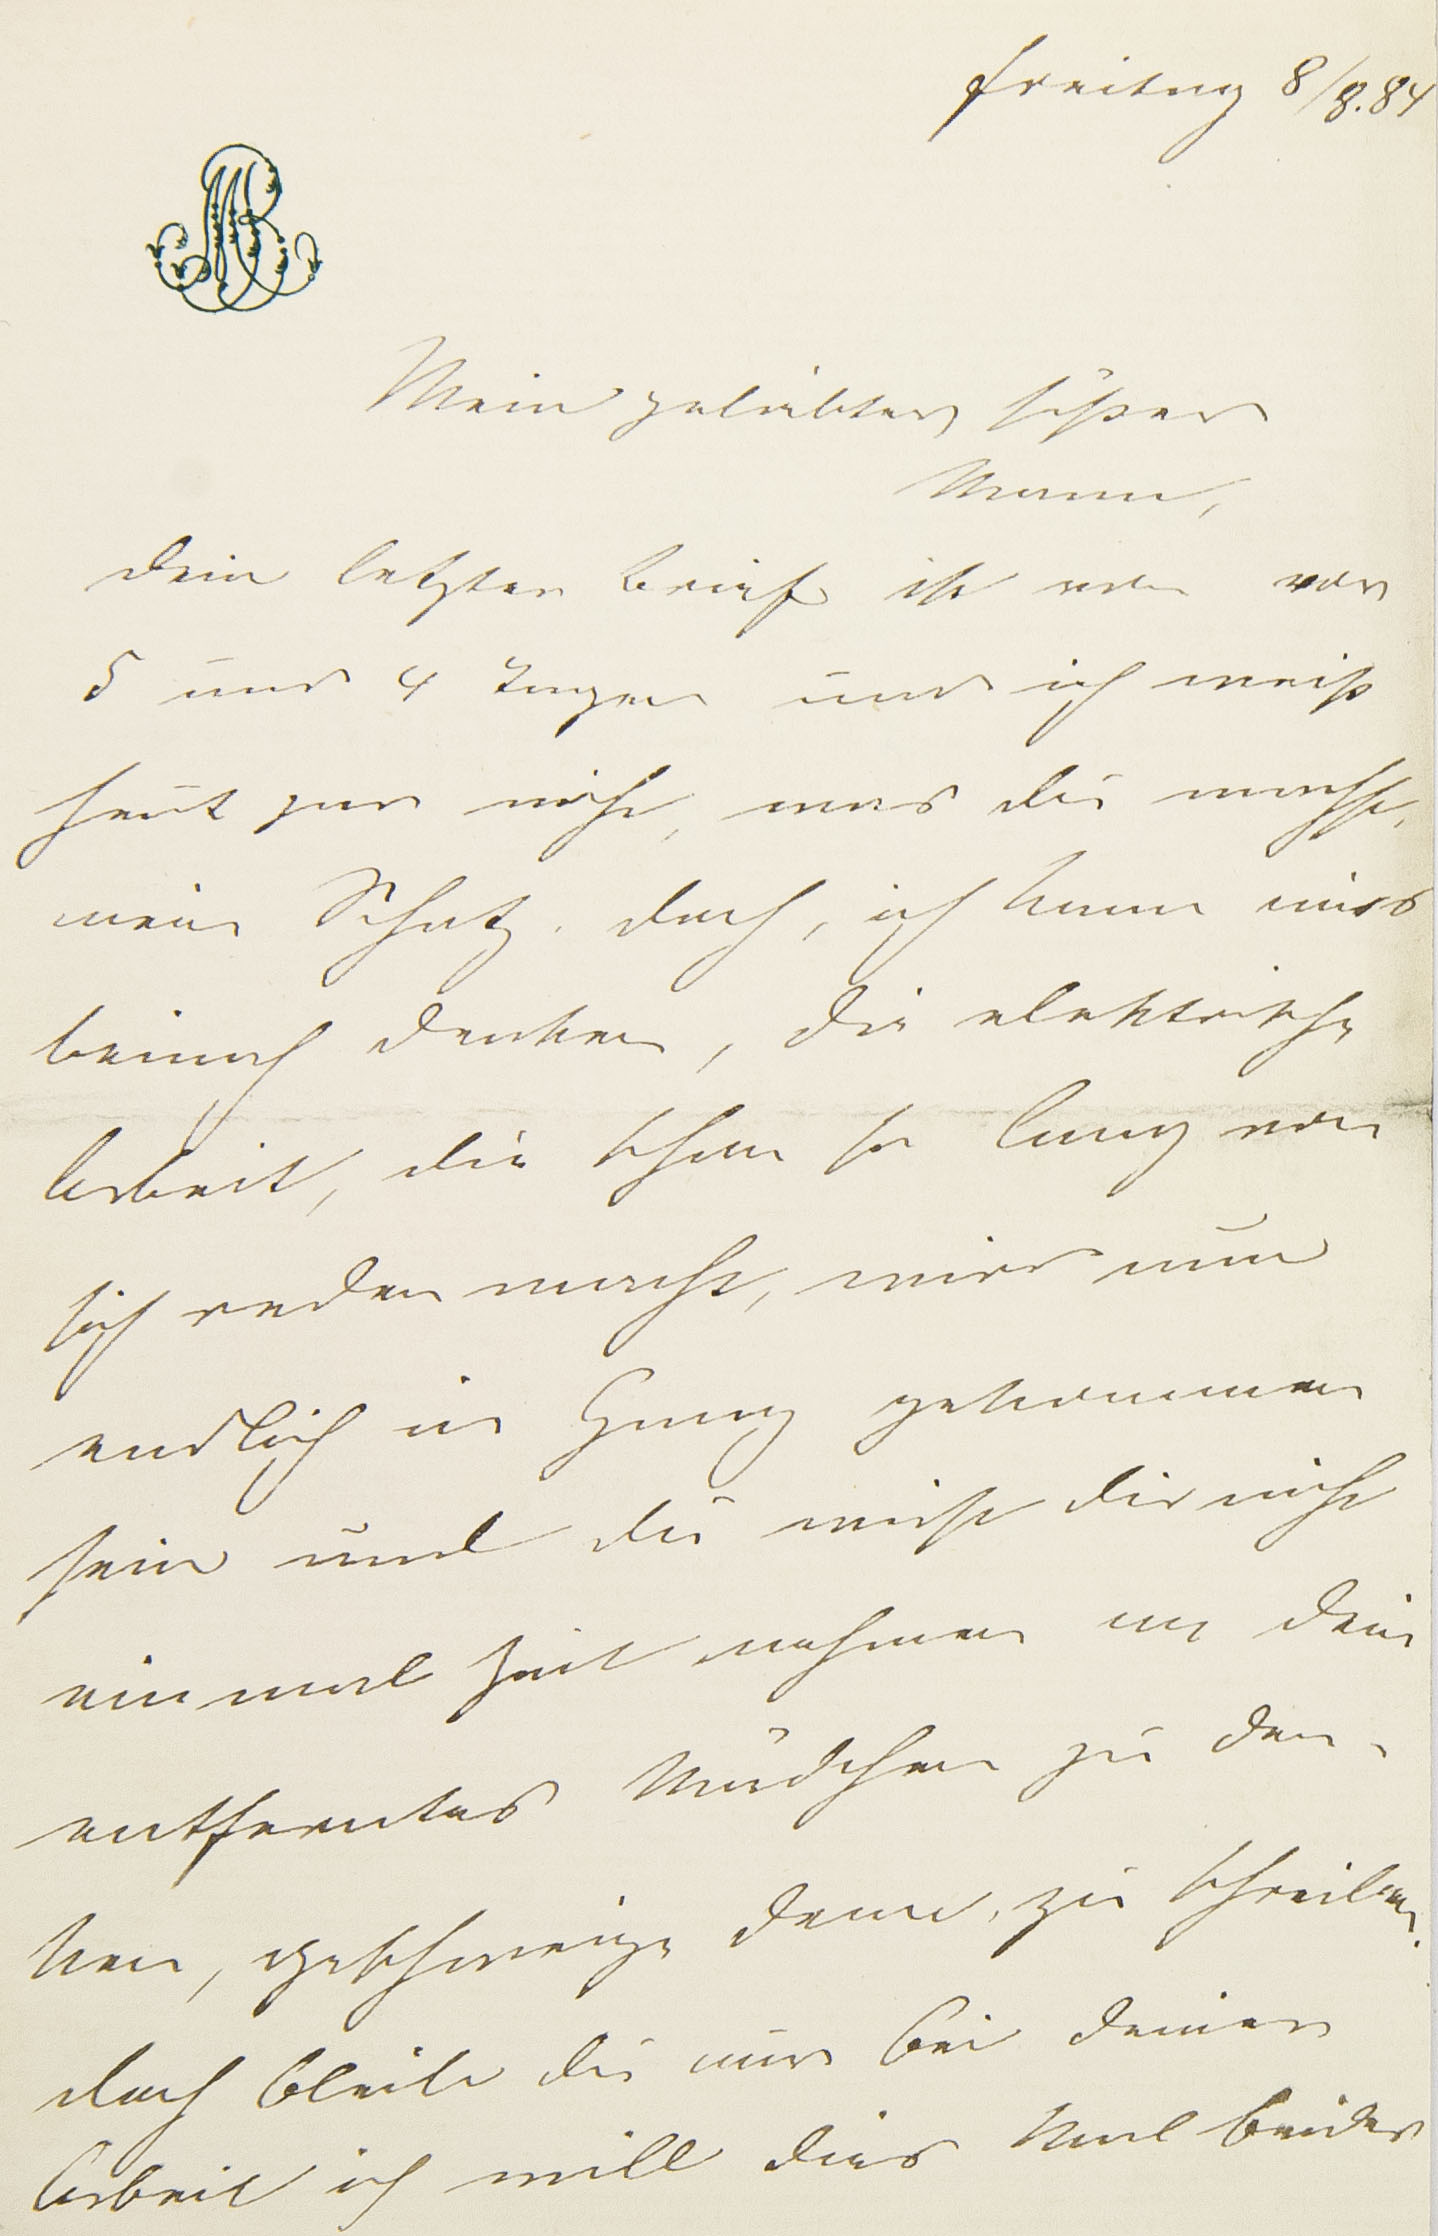 Freitag 8/8.84
MB
Mein geliebter süßer
Mann,
Dein letzter Brief ist nun vor
5 und 4 Tagen und ich weiß
heut gar nicht, was Du machst,
mein Schatz. Doch, ich kann mirs
beinah denken, die elektrische
Arbeit, die schon so lang von
sich reden macht, wird nun
endlich in Gang gekommen
sein und Du wirst Dir nicht
einmal Zeit nehmen an Dein
entferntes Mädchen zu den-
ken, geschweige denn, zu schreiben.
doch bleibe Du nur bei Deiner
Arbeit ich will dies Mal beides